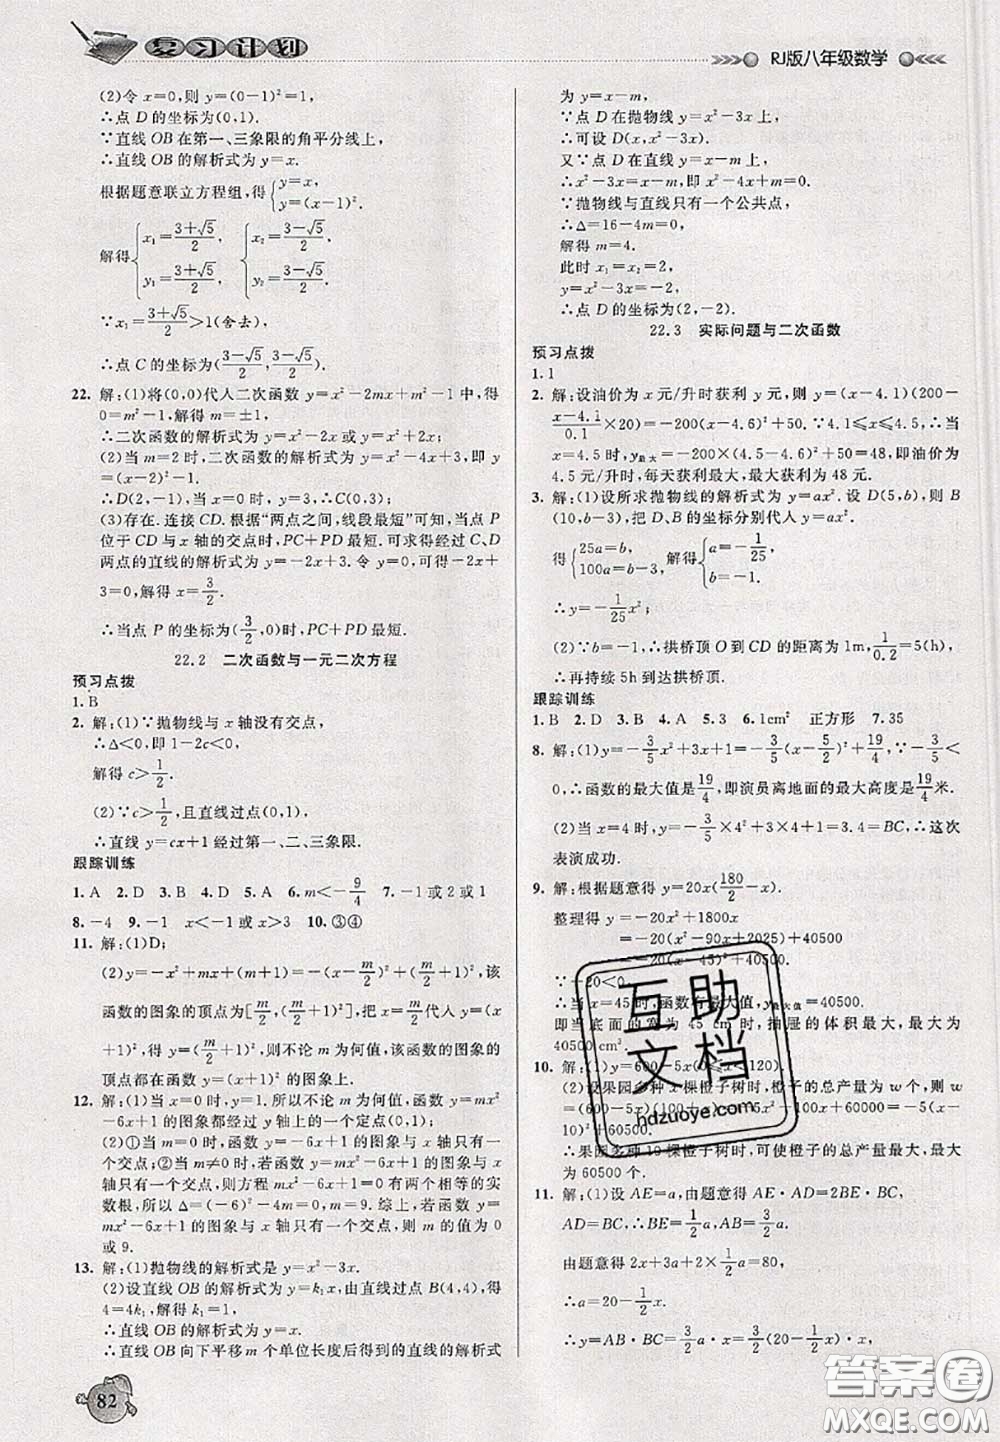 复习计划
RJ版八年级数学
(2)令 x=0,则 y=(0-1)²=1.
∴点 D 的坐标为(0,1).
∵直线 OB 在第一、三象限的角平分线上,
∴直线 OB 的解析式为 y=x.
根据题意联立方程组,得{y=x, y=(x-1)².
解得{x₁=(3+√5)/2, y₁=(3+√5)/2 {x₂=(3-√5)/2, y₂=(3-√5)/2
∵x₁=(3+√5)/2>1(舍去),
∴点 C 的坐标为((3-√5)/2,(3-√5)/2).
22. 解:(1)将(0,0)代人二次函数 y=x²-2mx+m²-1 中,得
0=m²-1.解得 m=±1,
∴二次函数的解析式为 y=x²-2x 或 y=x²+2x;
(2)当 m=2时,二次函数的解析式为 y=x²-4x+3,即
y=(x-2)²-1.
∴D(2,-1),当 x=0 时,y=3,∴C(0,3);
(3)存在.连接 CD.根据“两点之间,线段最短”可知,当点 P
位于 CD 与 x 轴的交点时,PC+PD 最短.可求得经过 C、D
两点的直线的解析式为 y=-2x+3.令 y=0,可得-2x+
3=0,解得 x=3/2.
∴当点 P 的坐标为(3/2,0)时,PC+PD 最短.
22.2 二次函数与一元二次方程
预习点拨
1.B
2. 解:(1)∵抛物线与 x 轴没有交点,
∴Δ<0,即 1-2c<0,
解得 c>1/2.
(2)∵c>1/2,且直线过点(0,1),
∴直线 y=cx+1经过第一、二、三象限.
跟踪训练
1. A 2. D 3. B 4. D 5. A 6. m<-9/4 7. -1 或 2 或 1
8. -4 9. -1 x<-1 或 x>3 10. ③④
11. 解:(1)D;
(2)y=-x²+mx+(m+1)=-(x-m/2)²+(m/2+1)²,该
函数的图象的顶点为[m/2,(m/2+1)²],把 x=m/2代入 y=(x
+1)²,得 y=(m/2+1)²,则不论 m 为何值,该函数的图象的
顶点都在函数 y=(x+1)²的图象上.
12. 解:(1)当 x=0 时,y=1.所以不论 m 为何值,函数 y=mx²
-6x+1 的图象都经过 y 轴上的一个定点(0,1);
(2)①当 m=0 时,函数 y=-6x+1 的图象与 x 轴只有一
个交点;②当 m≠0 时,若函数 y=mx²-6x+1 的图象与 x
轴只有一个交点,则方程 mx²-6x+1=0 有两个相等的实
数根,所以 Δ=(-6)²-4m=0,m=9.综上,若函数 y=
mx²-6x+1 的图象与 x 轴只有一个交点,则 m 的值为 0
或 9.
13. 解:(1)抛物线的解析式是 y=x²-3x.
(2)设直线 OB 的解析式为 y=k₁x,由直线过点 B(4,4),得
4=4k₁,解得 k₁=1.
∴直线 OB 的解析式为 y=x.
∴直线 OB 向下平移 m 个单位长度后得到的直线的解析式
82
为 y=x-m.
∵点 D 在抛物线 y=x²-3x 上,
∴可设 D(x,x²-3x).
又∵点 D 在直线 y=x-m 上,
∴x²-3x=x-m,即 x²-4x+m=0.
∵抛物线与直线只有一个公共点,
∴Δ=16-4m=0,
解得 m=4.
此时 x₁=x₂=2,
y=x²-3x=-2,
∴点 D 的坐标为(2,-2).
22.3 实际问题与二次函数
预习点拨
1. 1
2. 解:设油价为 x 元/升时获利 y 元,则 y=(x-4.1)(200-
(x-4.1)/0.1×20)=-200(x-4.6)²+50.∵4.1≤x≤4.5,∴当
x=4.5 时,y最大=-200×(4.5-4.6)²+50=48,即油价为
4.5 元/升时,每天获利最大,最大获利为 48 元.
3. 解:(1)设所求抛物线的解析式为 y=ax².设 D(5,b),则 B
(10,b-3),把 D、B 的坐标分别代人 y=ax².
得{25a=b, 100a=b-3,解得{a=-1/25, b=-1.
∴y=-1/25x²;
(2)∵b=-1,∴拱桥顶 O 到 CD 的距离为 1m,1/0.2=5(h)
∴再持续 5h 到达拱桥顶.
跟踪训练
1. B 2. D 3. B 4. A 5. 3 6. 1cm² 正方形 7. 35
8. 解:(1)y=-3/5x²+3x+1=-3/5(x-5/2)²+19/4,∵-3/5<
0,∴函数的最大值是19/4,即演员离地面的最大高度是19/4米.
(2)当 x=4 时,y=-3/5×4²+3×4+1=3.4=BC,∴这次
表演成功.
9. 解:根据题意得 y=20x(180/2-x).
整理得 y=-20x²+1800x
=-20(x²-90x+2025)+40500
=-20(x-45)²+40500.
∵-20<0,
∴当 x=45 时,函数有最大值,y最大值=40500.
即当底面的宽为 45 cm 时,抽屉的体积最大,最大为
40500 cm².
10. 解:(1)y=600-5x(0≤x<120).
(2)设果园多种 x 棵橙子树时,橙子的总产量为 w 个,则 w
=(600-5x)(100+x)=-5x²+100x+60000=-5(x-
10)²+60500.
∴果园多种 10 棵橙子树时,可使橙子的总产量最大,最大
为 60500 个.
11. 解:(1)设 AE=a,由题意得 AE·AD=2BE·BC,
AD=BC,∴BE=1/2a,AB=3/2a.
由题意得 2x+3a+2×1/2a=80,
∴a=20-1/2x.
∴y=AB·BC=3/2a·x=3/2(20-1/2x)x,
互助文档
hdzuoye.com
答案圈
MXQE.COM